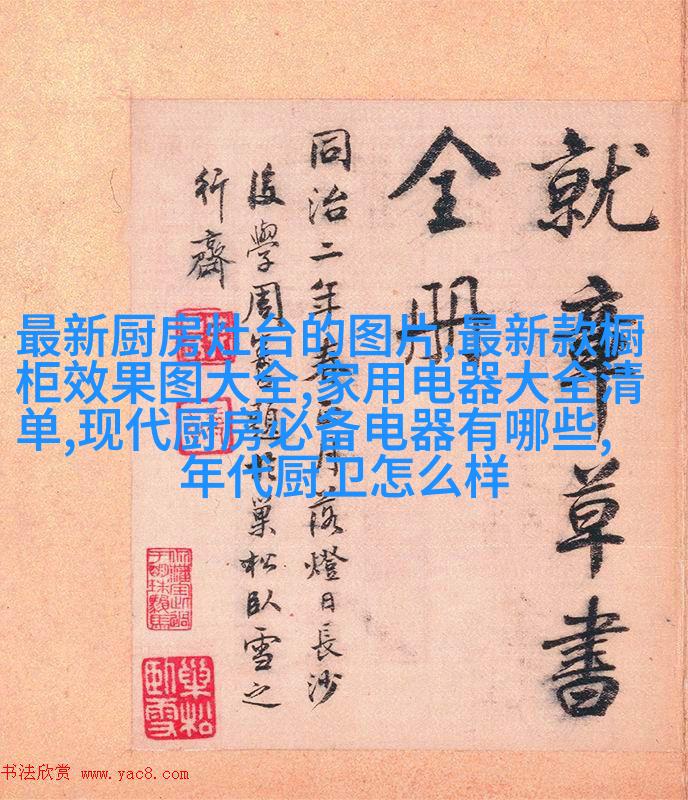 就章草書
全册
同治二年春正月落燈日長沙
後學周題於巢松臥雪之
行齋
最新厨房灶台的图片,最新款橱
柜效果图大全,家用电器大全清
单,现代厨房必备电器有哪些,
年代厨卫怎么样
巢松
臥雪
书法欣赏 www.yac8.com